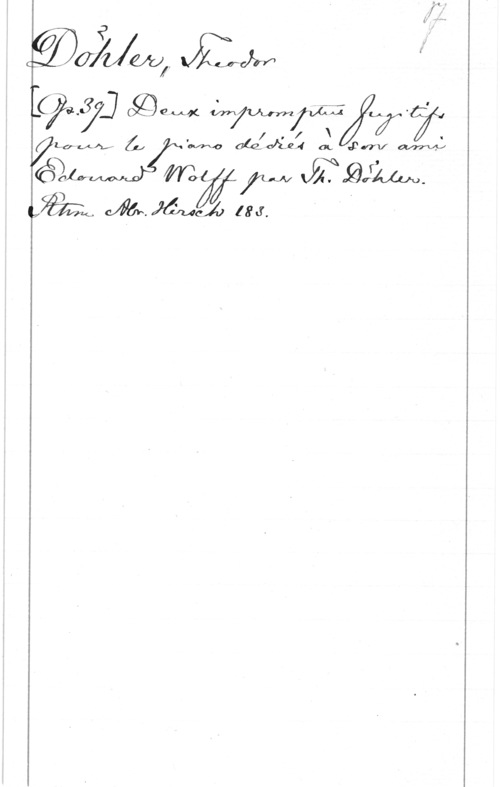 Pf
Döhler, Theodor
[Op.39] Deux impromptus fugitifs
pour le piano dédiés à son ami
Edouard Wolff par Th. Döhler.
Sthm. Abr. Hirsch 183.